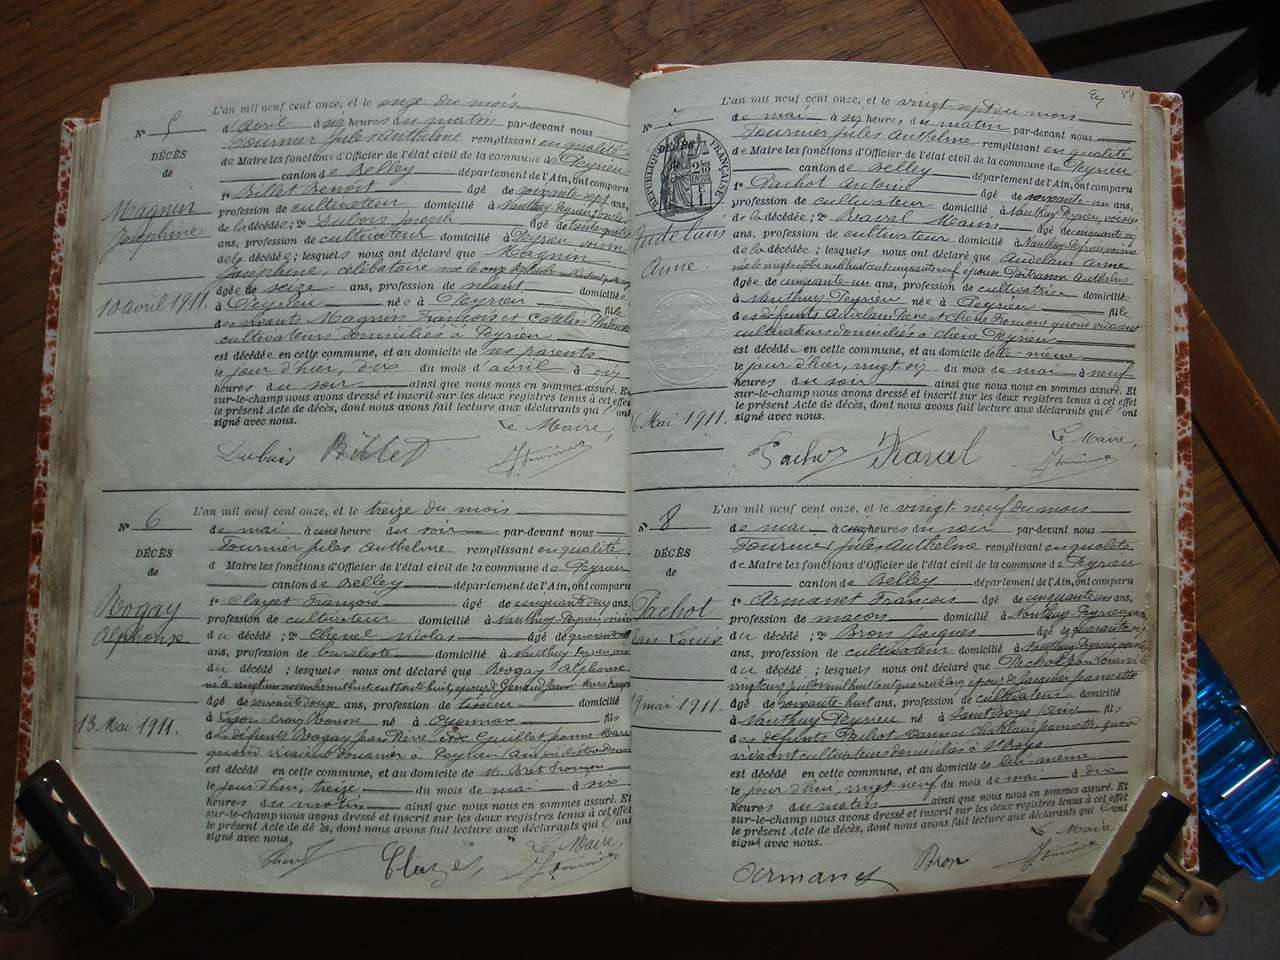 L'an mil neuf cent onze, et le onze du mois
N° 5 d'avril à six heures du matin par-devant nous
Tournier Jules Anthelme remplissant en qualité
DÉCÈS de Maire les fonctions d'Officier de l'état civil de la commune de Peyrieu
de canton de Belley département de l'Ain, ont comparu
1° Billet Benoit âgé de soixante-sept ans,
Magnin profession de cultivateur domicilié à Nanthuy Peyrieu,
Joséphine de la décédée; 2° Dubois Joseph âgé de trente-quatre
ans, profession de cultivateur domicilié à Peyrieu voisin
de la décédée; lesquels nous ont déclaré que Magnin
Joséphine, célibataire née
âgée de seize ans, profession de néant domiciliée
10 avril 1911. à Peyrieu née à Peyrieu fille
des vivants Magnin François et Catelin
cultivateurs domiciliés à Peyrieu
est décédée en cette commune, et au domicile de ses parents
le jour d'hier, dix du mois d'avril à dix
heures du soir ainsi que nous nous en sommes assuré. Et
sur-le-champ nous avons dressé et inscrit sur les deux registres tenus à cet effet
le présent Acte de décès, dont nous avons fait lecture aux déclarants qui ont
signé avec nous.
Le Maire,
Dubois Billet
L'an mil neuf cent onze, et le treize du mois
N° 6 de mai à une heure du soir par-devant nous
Tournier Jules Anthelme remplissant en qualité
DÉCÈS de Maire les fonctions d'Officier de l'état civil de la commune de Peyrieu
de canton de Belley département de l'Ain, ont comparu
1° Clayet François âgé de cinquante deux ans,
Rogay profession de cultivateur domicilié à Nanthuy Peyrieu, voisin
Alphonse du décédé; 2° Chenel Nicolas âgé de quarante
ans, profession de buraliste domicilié à Nanthuy Peyrieu,
du décédé; lesquels nous ont déclaré que Rogay Alphonse
né le vingt un novembre mil huit cent trente huit, époux de
âgé de soixante douze ans, profession de tisseur domicilié
13 Mai 1911. à Lyon-Croix Rousse né à Oyonnax fils
des défunts Rogay Jean Pierre et Guillot Jeanne Marie
quand vivaient douanier à Peyrieu (Ain)
est décédé en cette commune, et au domicile de M. Bret
le jour d'hui, treize du mois de mai à six
heures du matin ainsi que nous nous en sommes assuré. Et
sur-le-champ nous avons dressé et inscrit sur les deux registres tenus à cet effet
le présent Acte de décès, dont nous avons fait lecture aux déclarants qui ont
signé avec nous.
Le Maire,
Clayet
L'an mil neuf cent onze, et le vingt-sept du mois
N° 7 de mai à six heures du matin par-devant nous
Tournier Jules Anthelme remplissant en qualité
DÉCÈS de Maire les fonctions d'Officier de l'état civil de la commune de Peyrieu
RÉPUBLIQUE FRANÇAISE
2/10 EN SUS
1 F
canton de Belley département de l'Ain, ont comparu
1° Pachot Antoine âgé de soixante-un ans,
profession de cultivateur domicilié à Nanthuy Peyrieu, voisin
de la décédée; 2° Raval Marin âgé de cinquante
Audelain ans, profession de cultivateur domicilié à Nanthuy Peyrieu, voisin
Anne. de la décédée; lesquels nous ont déclaré que Audelain Anne
née le vingt octobre mil huit cent cinquante neuf épouse Anthelme
âgée de cinquante-un ans, profession de cultivatrice domiciliée
à Nanthuy Peyrieu née à Peyrieu fille
des défunts Audelain Pierre et quand vivaient
cultivateurs domiciliés à Peyrieu
est décédée en cette commune, et au domicile de elle-même
le jour d'hier, vingt six du mois de mai à neuf
heures du soir ainsi que nous nous en sommes assuré. Et
sur-le-champ nous avons dressé et inscrit sur les deux registres tenus à cet effet
6 Mai 1911. le présent Acte de décès, dont nous avons fait lecture aux déclarants qui ont
signé avec nous.
Le Maire,
Pachot Raval
L'an mil neuf cent onze, et le vingt-neuf du mois
N° 8 de mai à cinq heures du soir par-devant nous
Tournier Jules Anthelme remplissant en qualité
DÉCÈS de Maire les fonctions d'Officier de l'état civil de la commune de Peyrieu
de canton de Belley département de l'Ain, ont comparu
1° Armanet François âgé de cinquante un ans,
Pachot profession de maçon domicilié à Nanthuy Peyrieu,
Louis du décédé; 2° Bron Jacques âgé de quarante-six
ans, profession de cultivateur domicilié à Nanthuy Peyrieu,
du décédé; lesquels nous ont déclaré que Pachot Jean Louis né
vingt cinq mil huit cent quarante deux époux de Jeannette
âgé de soixante-huit ans, profession de cultivateur domicilié
9 mai 1911. à Nanthuy Peyrieu né à Saint Bois (Ain) fils
des défunts Pachot et Jeannette, quand
vivaient cultivateurs domiciliés à St Bois
est décédé en cette commune, et au domicile de lui-même
le jour d'hui, vingt neuf du mois de mai à dix
heures du matin ainsi que nous nous en sommes assuré. Et
sur-le-champ nous avons dressé et inscrit sur les deux registres tenus à cet effet
le présent Acte de décès, dont nous avons fait lecture aux déclarants qui ont
signé avec nous.
Le Maire,
Armanet Bron